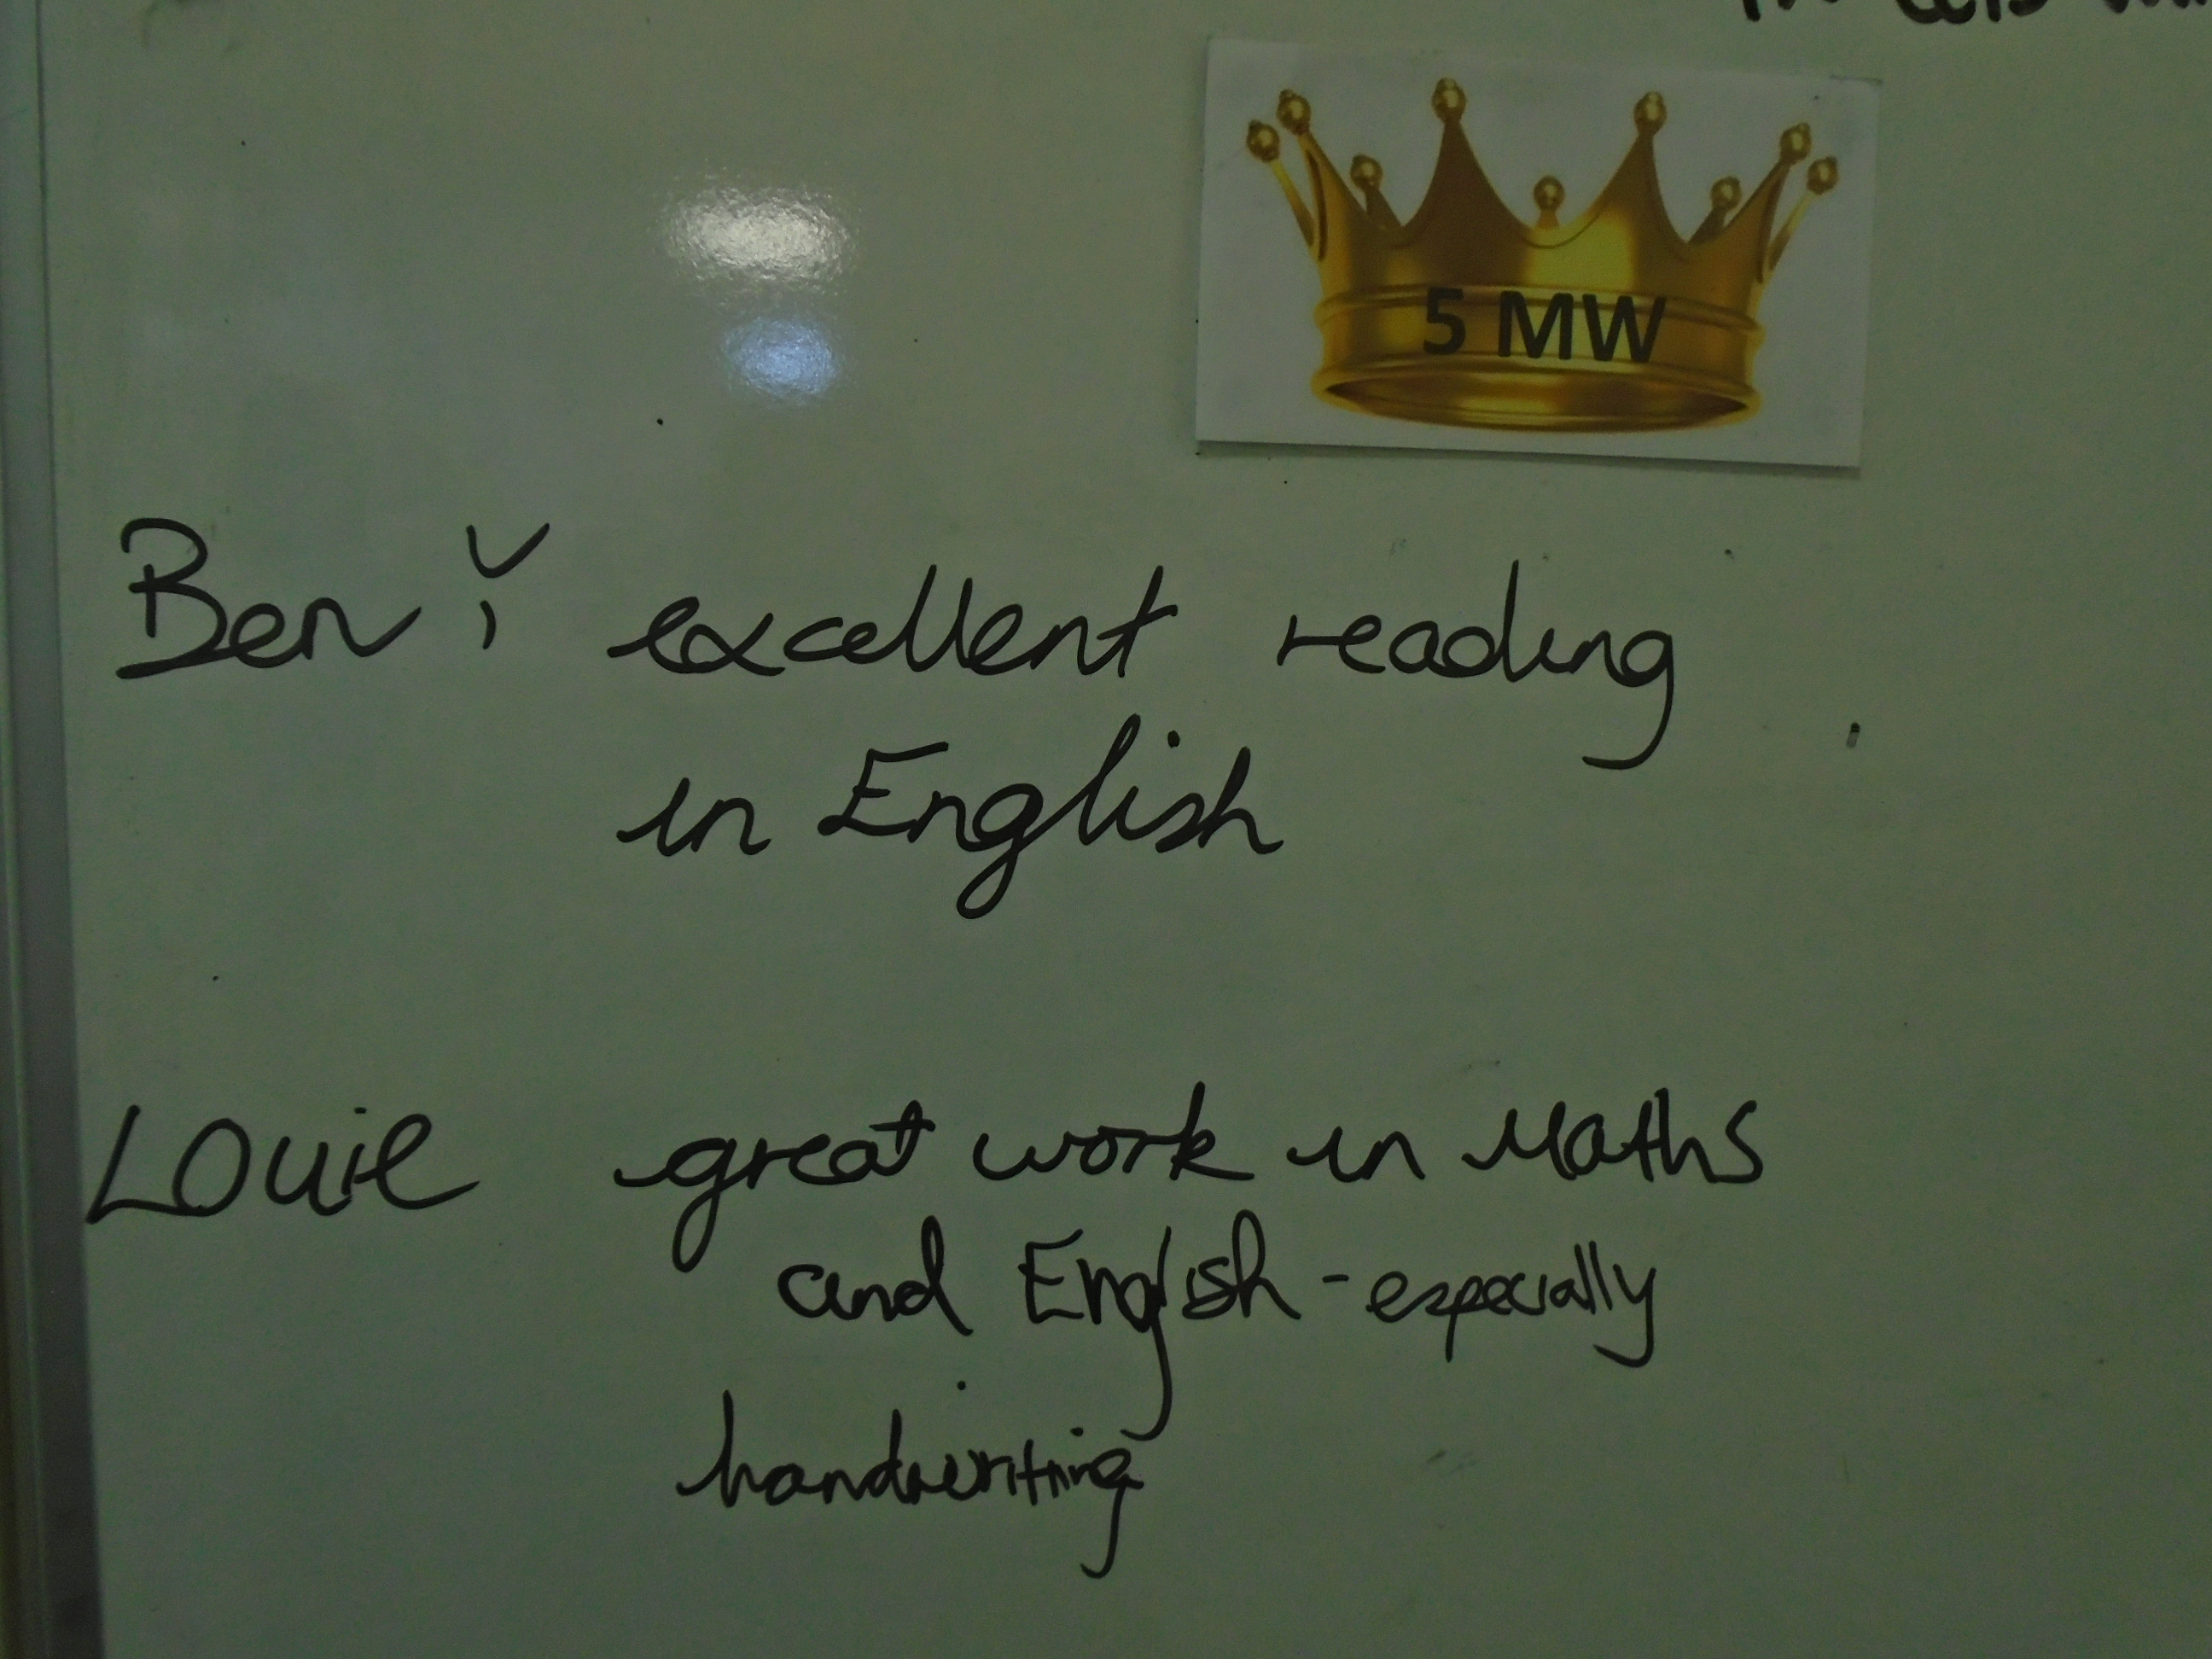 5 MW
Ben excellent reading
in English
Louie great work in Maths
and English - especially
handwriting